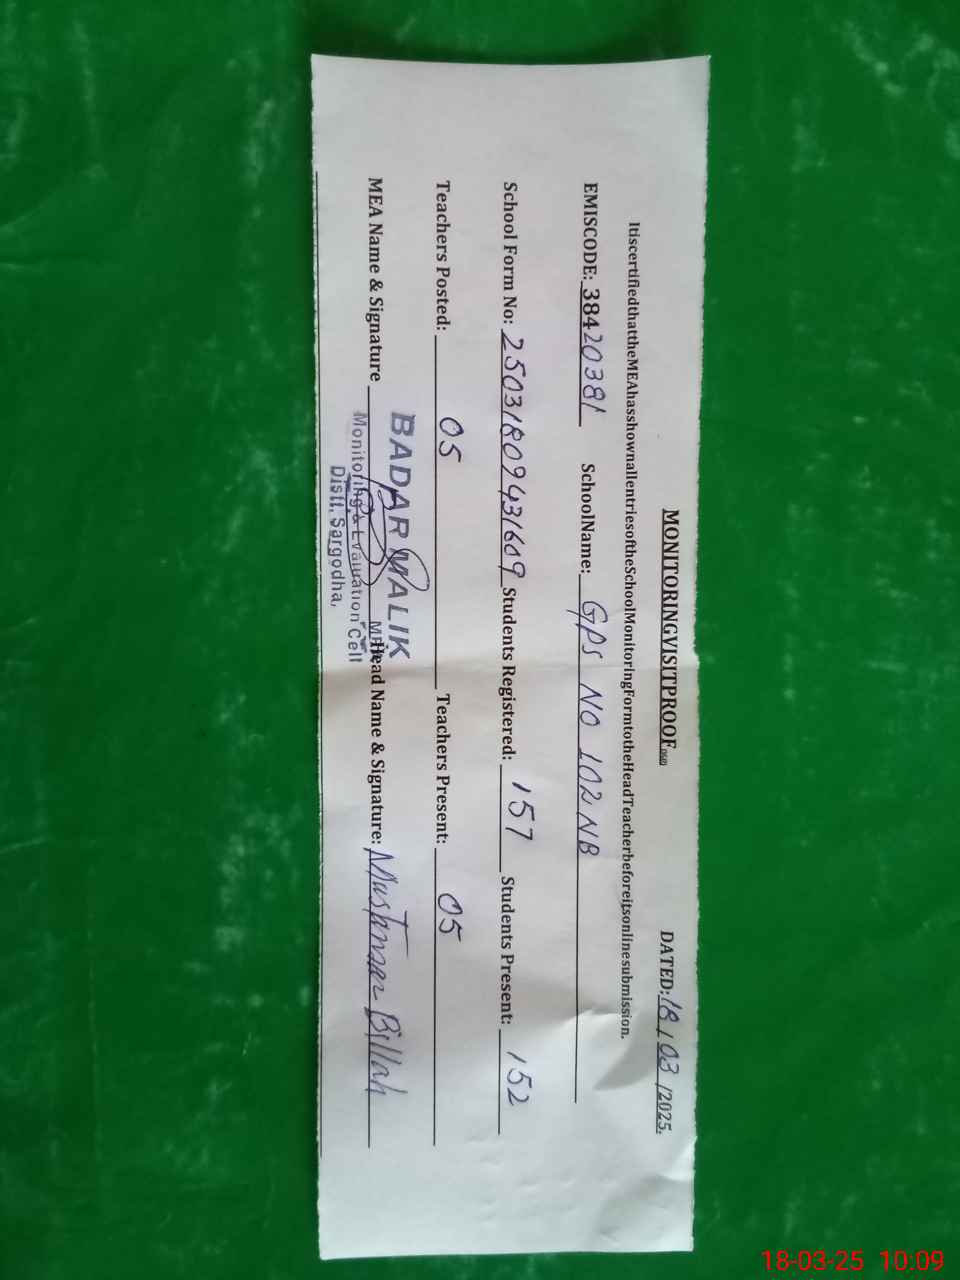 MONITORINGVISITPROOF DATED:18/03/2025.
ItiscertifiedthattheMEAhasshownallentriesoftheSchoolMonitoringFormtotheHeadTeacherbeforeitsonlinesubmission.
EMISCODE: 38420381 SchoolName: GPS NO 102 NB
School Form No: 25031809431609 Students Registered: 157 Students Present: 152
Teachers Posted: 05 Teachers Present: 05
MEA Name & Signature Head Name & Signature: Mustnser Billah
BADAR MALIK
Monitoring & Evaluation Cell
Distt. Sargodha.
18-03-25 10:09